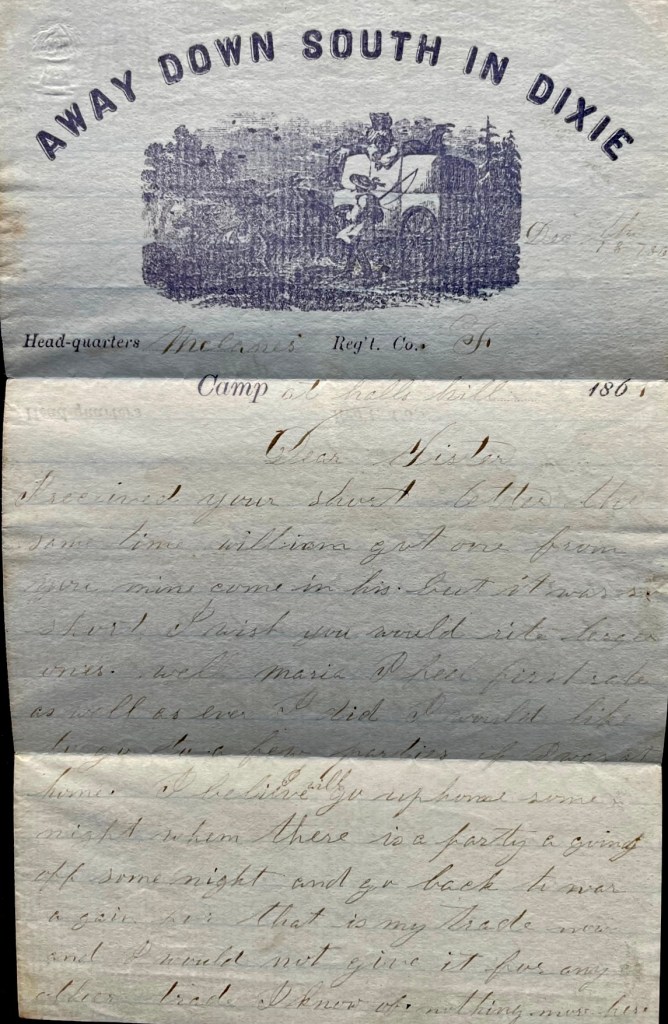 AWAY DOWN SOUTH IN DIXIE
Dec
Head-quarters Mclanes Reg't. Co.
Camp at halls hill 186
Dear Sister
I received your short letter the
same time william got one from
you mine come in his. but it was so
short I wish you would rite larger
ones. well maria I feel first rate
as well as ever I did I would like
to go to a few parties if I was at
home. I believe I will go up home some
night when there is a party a going
off some night and go back to war
a gain for that is my trade now
and I would not give it for any
other trade I know of. nothing more here